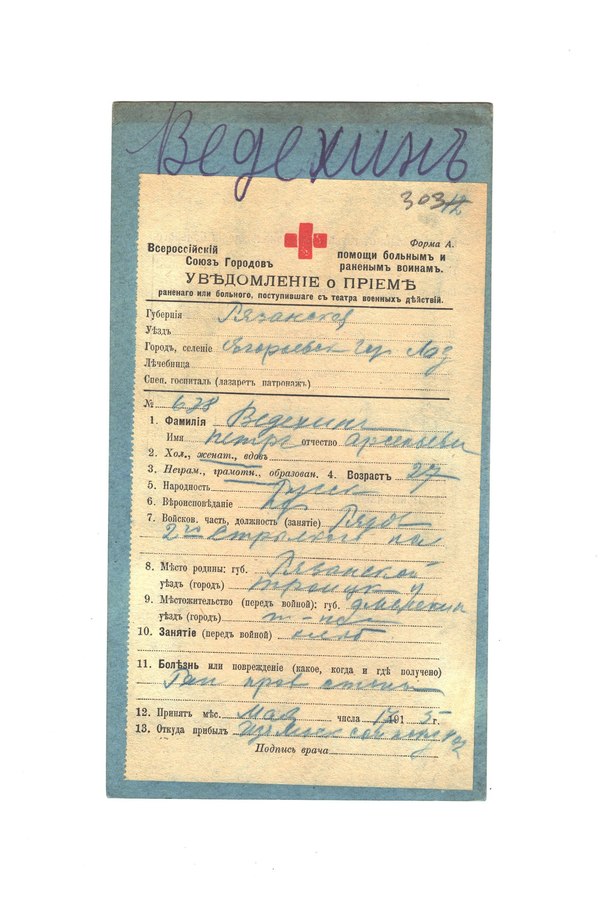 Ведехинъ
303
Всероссійскій Союзъ Городовъ
помощи больнымъ и раненымъ воинамъ.
Форма А.
УВѢДОМЛЕНІЕ о ПРІЕМѢ
раненаго или больного, поступившаго съ театра военныхъ дѣйствій.
Губернія Рязанская
Уѣздъ
Городъ, селеніе Егорьевск гор
Лѣчебница
Спец. госпиталь (лазаретъ патронажъ)
№ 678
1. Фамилія Ведехинъ
Имя Петръ отчество Арсеньеви
2. Хол., женат., вдовъ
3. Неграм., грамотн., образован. 4. Возрастъ 27
5. Народность Русск
6. Вѣроисповѣданіе
7. Войсков. часть, должность (занятіе) Рядов
2 Стрѣлковаго пол
8. Мѣсто родины: губ. Рязанской
уѣздъ (городъ)
9. Мѣстожительство (передъ войной): губ.
уѣздъ (городъ)
10. Занятіе (передъ войной)
11. Болѣзнь или поврежденіе (какое, когда и гдѣ получено)
Ран прав стопы
12. Принятъ мѣс. Мая числа 17 1915 г.
13. Откуда прибылъ Из Моск
Подпись врача